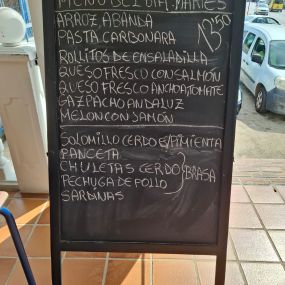 MENU DEL DIA, MARTES
ARROZ ABANDA
13'50
PASTA CARBONARA
ROLLITOS DE ENSALADILLA
QUESO FRESCO CON SALMÓN
QUESO FRESCO ANCHOA TOMATE
GAZPACHO ANDALUZ
MELON CON JAMÓN
SOLOMILLO CERDO E/PIMIENTA
PANCETA
CHULETAS CERDO BRASA
PECHUGA DE POLLO
SARDINAS